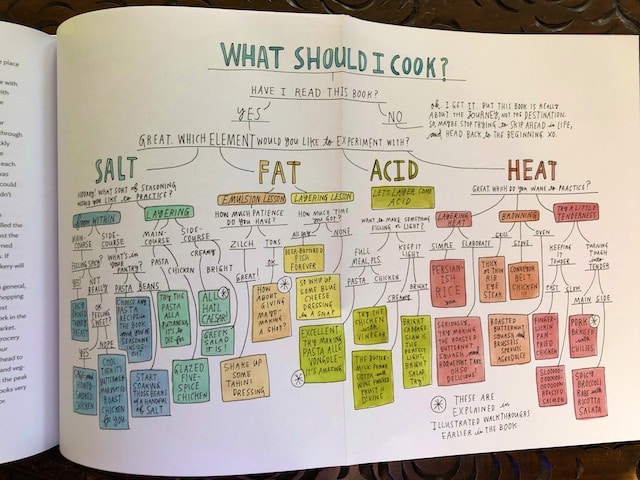 WHAT SHOULD I COOK?
HAVE I READ THIS BOOK?
YES
NO
ok I GET IT. BUT THIS BOOK IS REALLY
ABOUT THE JOURNEY, NOT THE DESTINATION.
SO MAYBE STOP TRYING to SKIP AHEAD in LIFE,
and HEAD BACK to THE BEGINNING. XO.
GREAT. WHICH ELEMENT WOULD YOU LIKE to EXPERIMENT WITH?
SALT
FAT
ACID
HEAT
HOORAY! WHAT SORT of SEASONING
WOULD YOU LIKE to PRACTICE?
FROM WITHIN
LAYERING
MAIN-
COURSE
SIDE-
COURSE
FEELING SPICY?
YES
NOT
REALLY
WHAT'S in
YOUR
PANTRY?
PASTA
BEANS
OR
FEELING SWEET?
YES
NOPE
CHOOSE ANY
PASTA
RECIPE in
THE BOOK
START
SOAKING
THOSE BEANS
W/ A HANDFUL
of SALT
MAIN-
COURSE
SIDE-
COURSE
PASTA
CHICKEN
CREAMY
BRIGHT
TRY THE
PASTA
ALLA
PUTTANESCA,
IT'S to
DIE FOR
GLAZED
FIVE-
SPICE
CHICKEN
ALL
HAIL
CAESAR!
GREEK
SALAD
IT IS!
EMULSION LESSON
LAYERING LESSON
HOW MUCH PATIENCE
DO YOU HAVE?
ZILCH
TONS
GREAT!
HOW
ABOUT
GIVING
MAYO-
MAKING
A SHOT?
SHAKE UP
SOME
TAHINI
DRESSING
HOW MUCH TIME
YOU GOT?
ALL DAY
NONE
BEER-BATTERED
FISH
FOREVER
SO WHIP UP
SOME BLUE
CHEESE
DRESSING
in A SNAP
LET'S LAYER SOME
ACID
WANT to MAKE SOMETHING
FILLING or LIGHT?
FULL
MEAL, PLS.
KEEP IT
LIGHT
PASTA
CHICKEN
CREAMY
BRIGHT
EXCELLENT
TRY MAKING
PASTA ALLE
VONGOLE-
IT'S AMAZING
TRY THE
CHICKEN
with
VINEGAR
BRIGHT
CABBAGE
SLAW is
THE
PERFECT
LIGHT,
BRIGHT
SALAD.
TRY!
GREAT. WHICH DO YOU WANT to PRACTICE?
LAYERING
HEAT
BROWNING
TRY A LITTLE
TENDERNESS
SIMPLE
ELABORATE
PERSIAN-
ISH
RICE
SERIOUSLY,
TRY MAKING
THE ROASTED
BUTTERNUT
SQUASH and
DELICIOUS!
GRILL
STOVE
OVEN
THICK or
THIN
RIB
EYE
STEAK
CONVEYOR
BELT
CHICKEN
ROASTED
BUTTERNUT
SQUASH and
BRUSSELS
SPROUTS in
AGRODOLCE
KEEPING
IT
TENDER
TURNING
TOUGH
into
TENDER
FAST
SLOW
MAIN
SIDE
FINGER-
LICKIN'
PAN-
FRIED
CHICKEN
ROASTED
SALMON
PORK
BRAISED
with
CHILIES
SPICY
BROCCOLI
RABE with
RICOTTA
SALATA
THESE ARE
EXPLAINED in
ILLUSTRATED WALKTHROUGHS
EARLIER in THE BOOK.